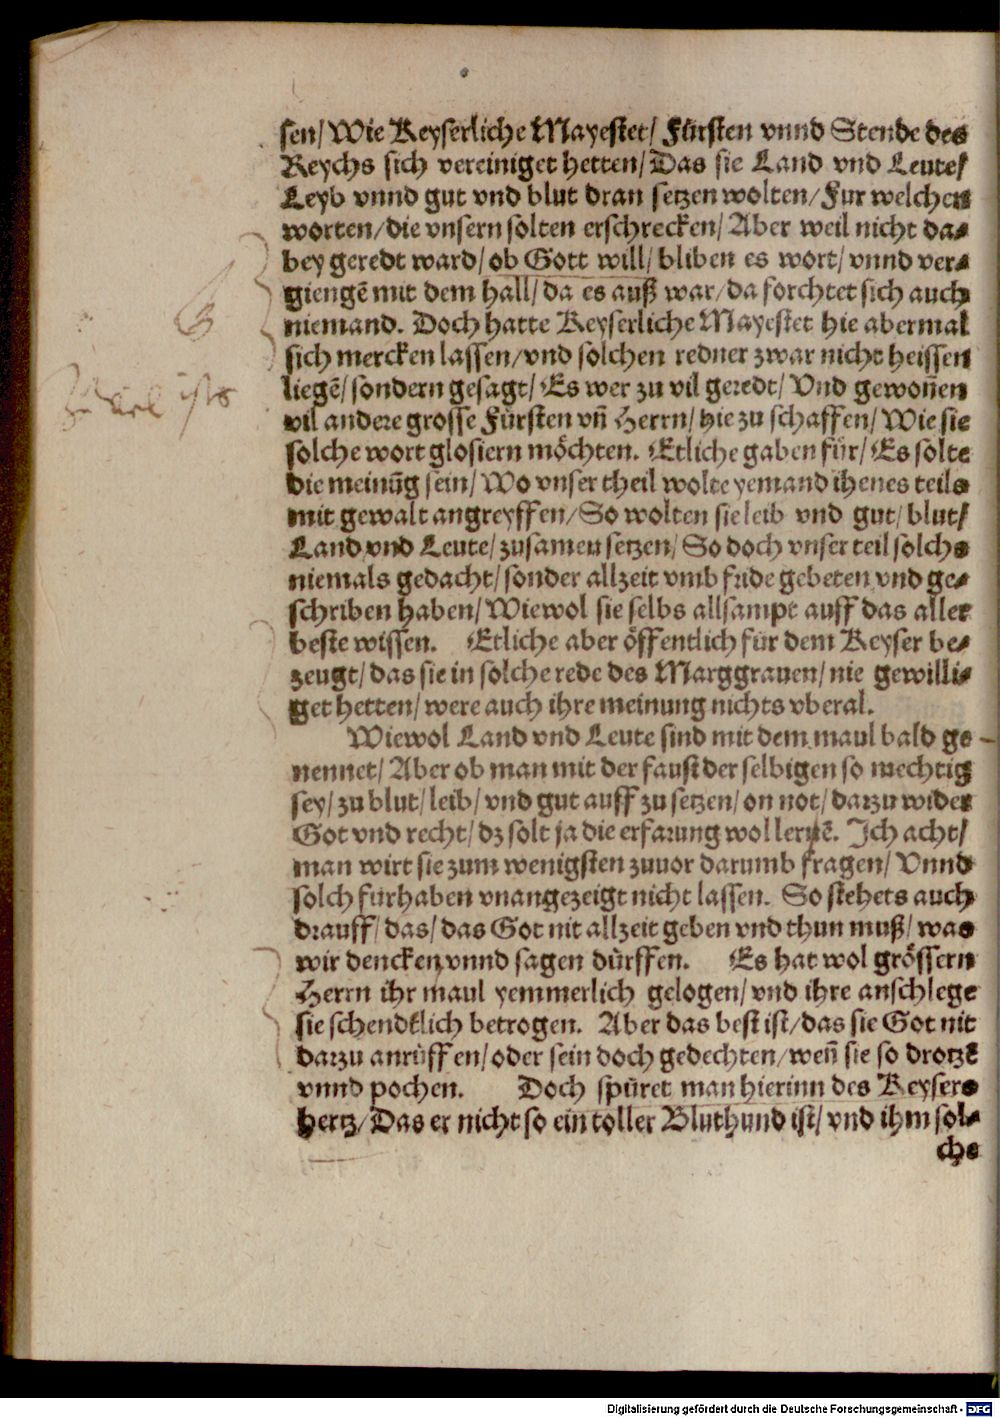 sen/ Wie Keyserliche Mayestet/ Fürsten vnnd Stende des
Reychs sich vereiniget hetten/ Das sie Land vnd Leute/
Leyb vnnd gut vnd blut dran setzen wolten/ Fur welchen
worten/ die vnsern solten erschrecken/ Aber weil nicht da-
bey geredt ward/ ob Gott will/ bliben es wort/ vnnd ver-
giengē mit dem hall/ da es auß war/ da forchtet sich auch
niemand. Doch hatte Keyserliche Mayestet hie abermal
sich mercken lassen/ vnd solchen redner zwar nicht heissen
liegē/ sondern gesagt/ Es wer zu vil geredt/ Vnd gewoñen
vil andere grosse Fürsten vñ Herrn/ hie zu schaffen/ Wie sie
solche wort glosiern möchten. Etliche gaben für/ Es solte
die meinūg sein/ Wo vnser theil wolte yemand ihenes teils
mit gewalt angreyffen/ So wolten sie leib vnd gut/ blut/
Land vnd Leute/ zusamen setzen/ So doch vnser teil solchs
niemals gedacht/ sonder allzeit vmb fride gebeten vnd ge-
schriben haben/ Wiewol sie selbs allsampt auff das aller
beste wissen. Etliche aber öffentlich für dem Keyser be-
zeugt/ das sie in solche rede des Marggrauen/ nie gewilli-
get hetten/ were auch ihre meinung nichts vberal.
Wiewol Land vnd Leute sind mit dem maul bald ge-
nennet/ Aber ob man mit der faust der selbigen so mechtig
sey/ zu blut/ leib/ vnd gut auff zu setzen/ on not/ darzu wider
Got vnd recht/ dz solt ja die erfarung wol lernē. Ich acht/
man wirt sie zum wenigsten zuuor darumb fragen/ Vnnd
solch fürhaben vnangezeigt nicht lassen. So stehets auch
drauff/ das/ das Got nit allzeit geben vnd thun muß/ was
wir dencken vnnd sagen dürffen. Es hat wol grössern
Herrn ihr maul yemmerlich gelogen/ vnd ihre anschlege
sie schendtlich betrogen. Aber das best ist/ das sie Got nit
darzu anrüffen/ oder sein doch gedechten/ weñ sie so drotzē
vnnd pochen. Doch spüret man hierinn des Keysers
hertz/ Das er nicht so ein toller Bluthund ist/ vnd ihm sol-
che
Digitalisierung gefördert durch die Deutsche Forschungsgemeinschaft - DFG